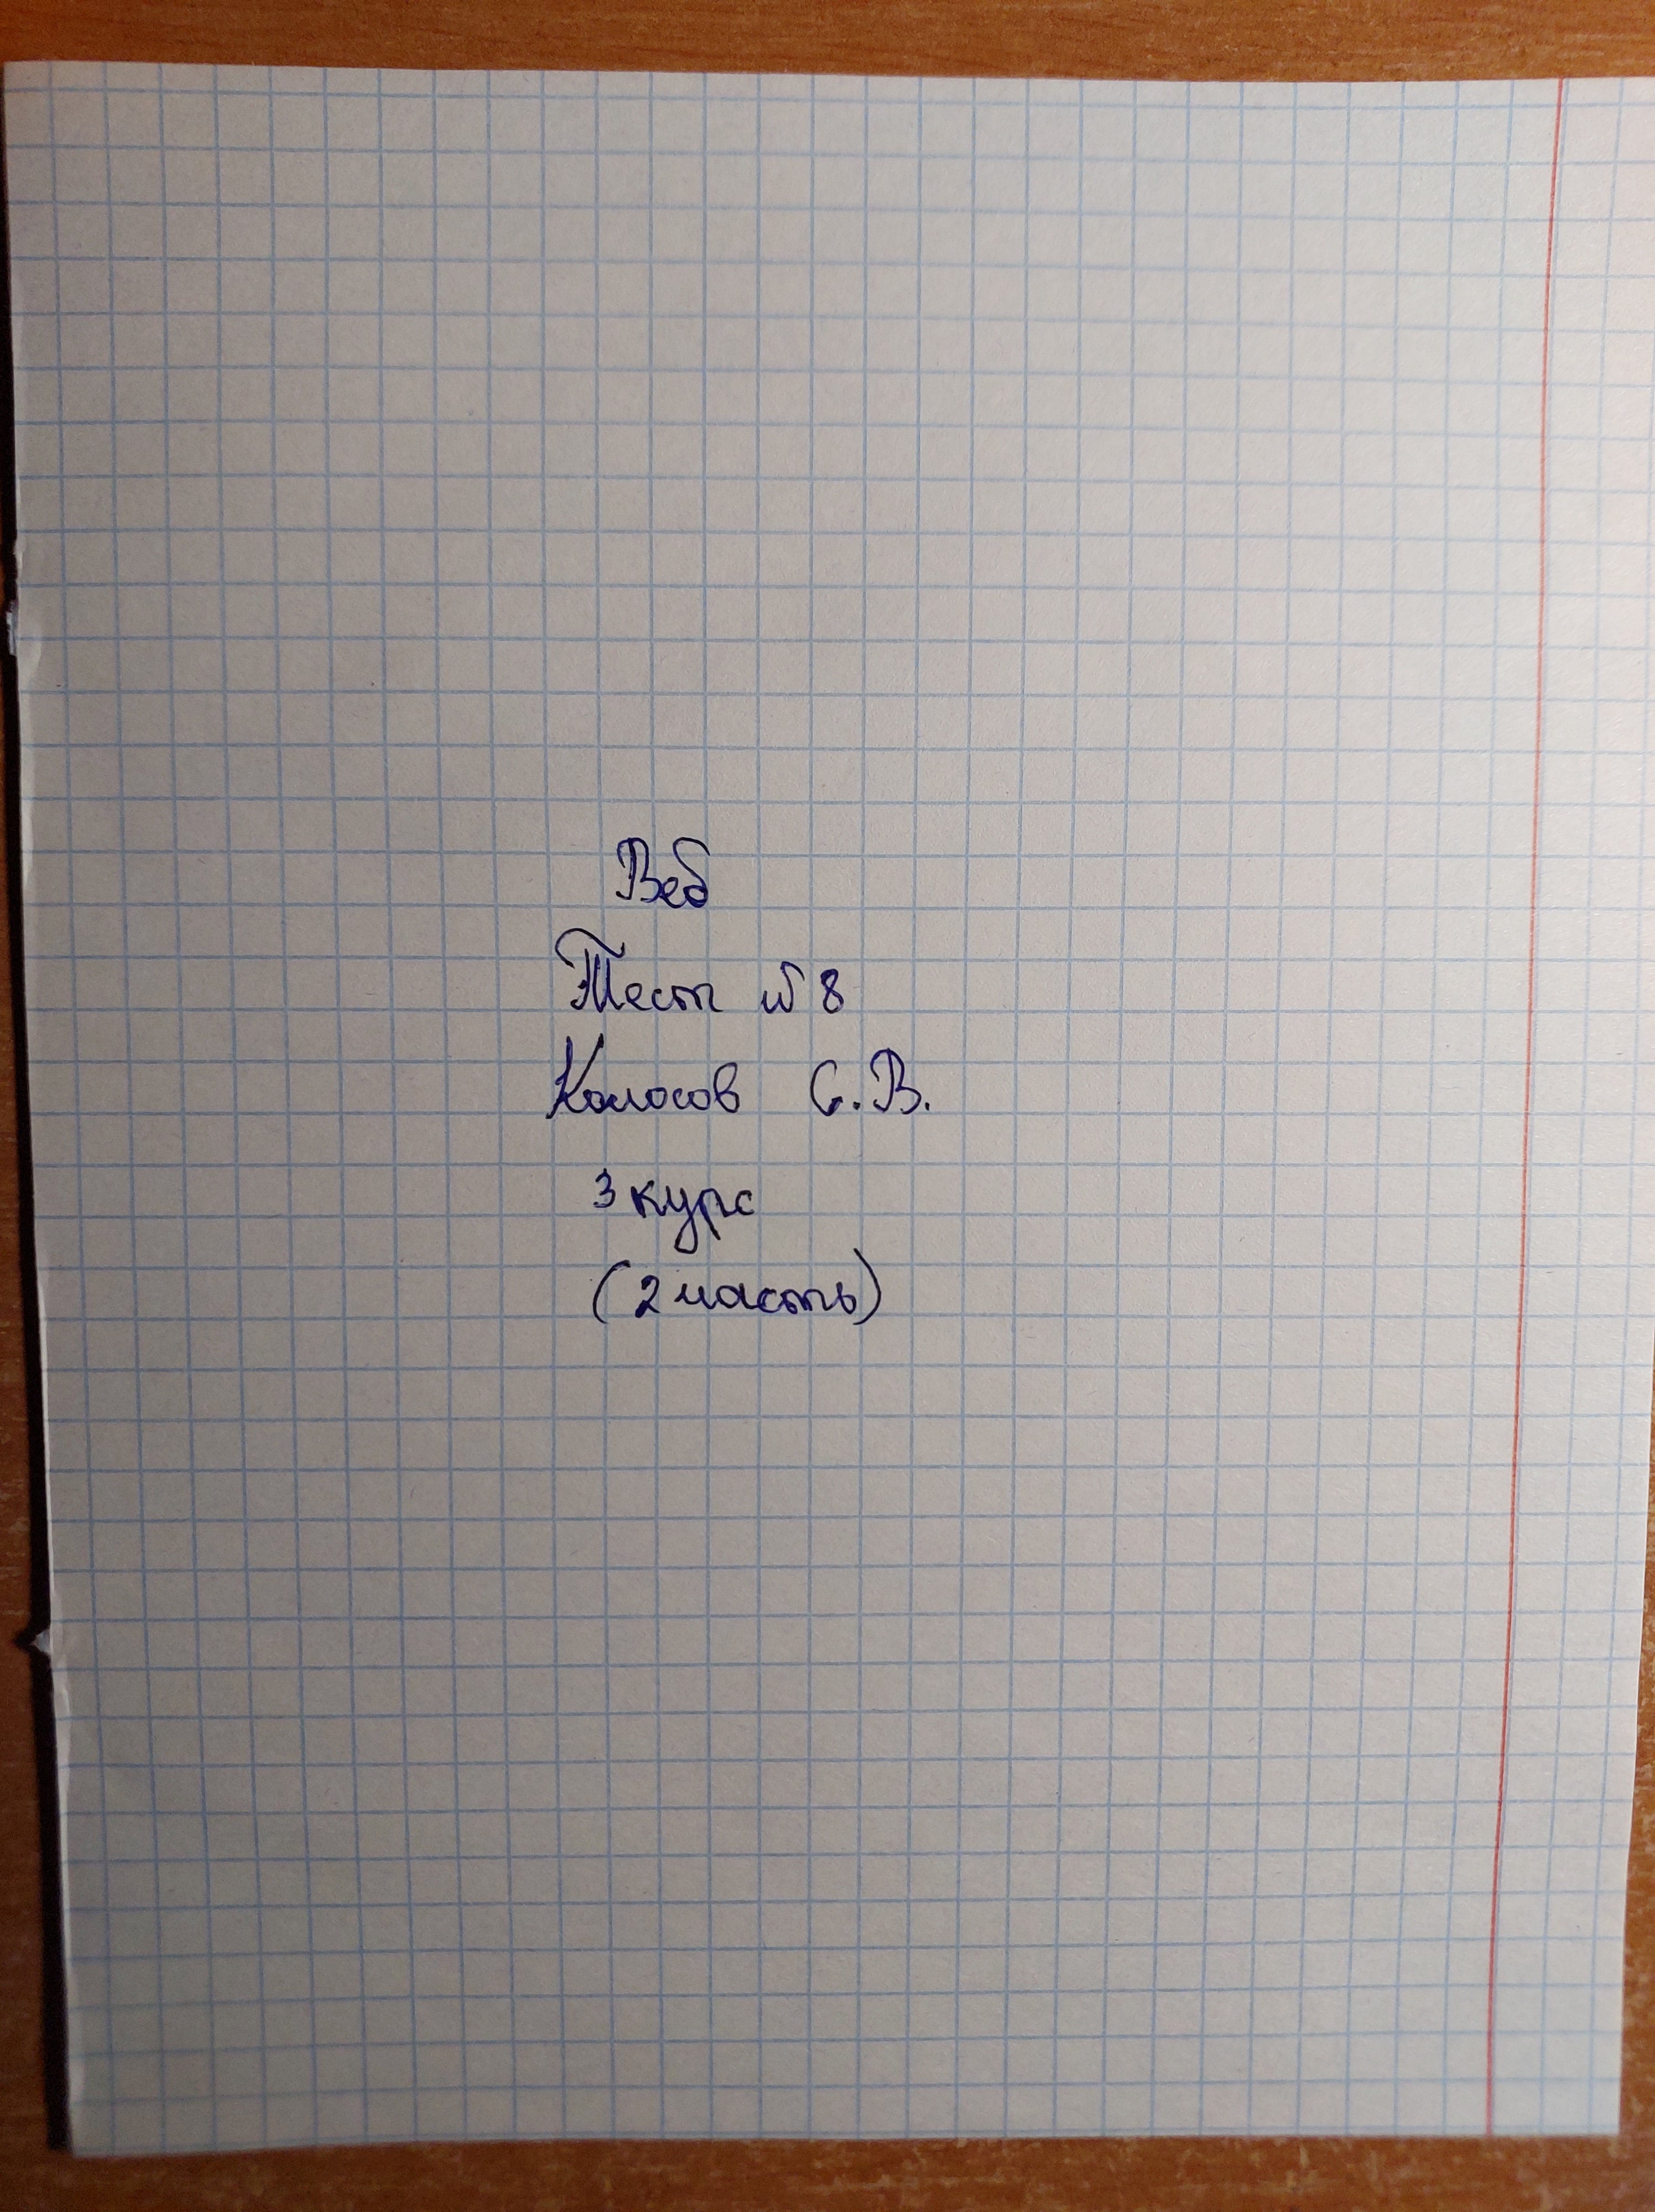 Веб
Тест №8
Колосов С.В.
3 курс
(2 часть)